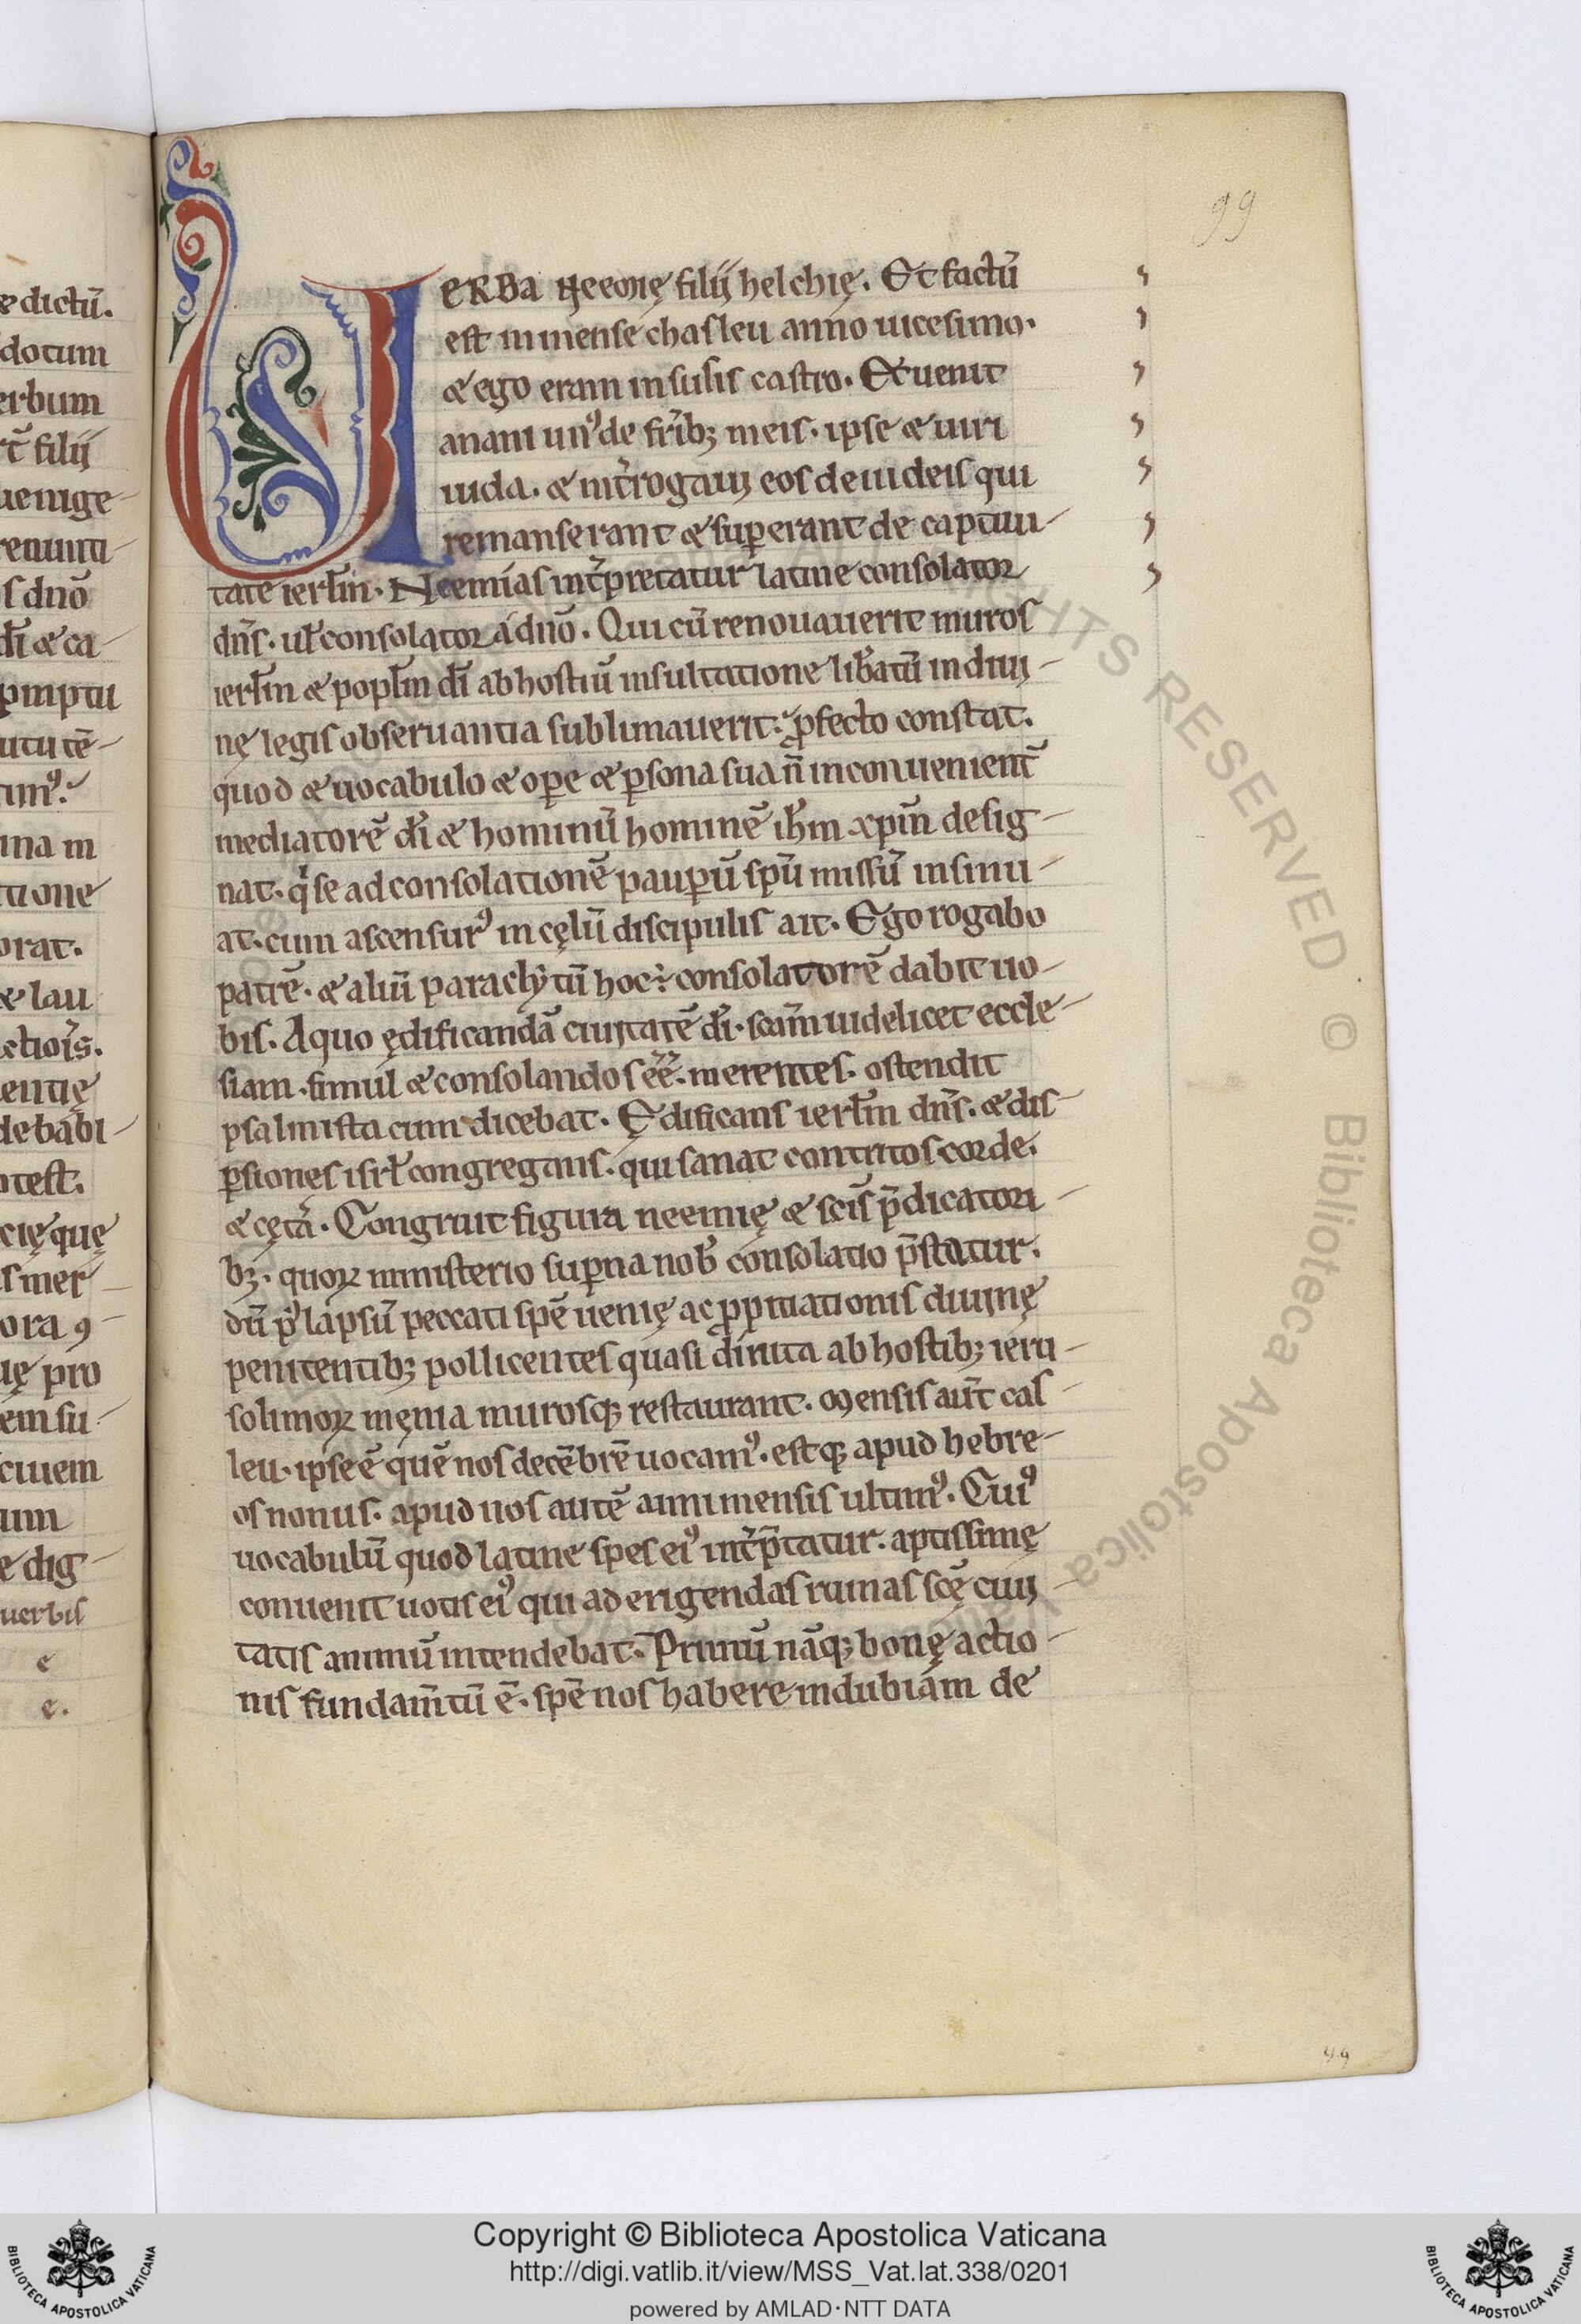 99
UERBA Neemię filij helchię. Et factū
est in mense chasleu anno uicesimo.
& ego eram in susis castro. Et uenit
anani unꝰ de frīb; meis. ipse & uiri
iuda. & int̄rogaui eos de iudeis qui
remanserant & suꝑerant de captiui-
tate ierl̄m. Neemias int̄pretatur latine consolator
dn̄s. ul̄ consolator a dn̄o. Qui cū renouauerit muros
ierl̄m & popl̄m dī ab hostiū insultatione lib̄atū in diui-
nę legis obseruantia sublimauerit. ꝓfecto constat.
quod & uocabulo & oꝑe & ꝑsona sua n̄ inconuenient̄
mediatorē dī & hominū hominē ih̄m xp̄m desig-
nat. q̇ se ad consolationē pauꝑū sp̄u missū insinu-
at. cum ascensurꝰ in cęlū discipulis ait. Ego rogabo
patrē. & aliū paraclytū hoc ÷ consolatorē dabit uo-
bis. A quo ędificandā ciuitatē dī. sc̄am uidelicet eccle-
siam. simul & consolandos ēē merentes. ostendit
psalmista cum dicebat. Ędificans ierl̄m dn̄s. & dis-
ꝑsiones isrl̄ congregans. qui sanat contritos corde.
& cęt̄a. Congruit figura neemię & sc̄is p̄dicatori-
b;. quoꝝ ministerio suꝑna nob̄ consolatio p̄statur.
dū pꝰ lapsū peccati spē uenię ac ꝓpitiationis diuinę
penitentib; pollicentes quasi diruta ab hostib; ieru-
solimoꝝ męnia murosq; restaurant. Mensis aūt cas-
leu. ipse ē quē nos decēbrē uocamꝰ. estq; apud hebre-
os nonus. apud nos autē anni mensis ultimꝰ. Cuiꝰ
uocabulū quod latine spes eiꝰ int̄p̄tatur. aptissimę
conuenit uotis eiꝰ qui ad erigendas ruinas sc̄ę ciui-
tatis animū intendebat. Primū nāq; bonę actio-
nis fundam̄tū ē. spē nos habere indubiam de
99
Copyright © Biblioteca Apostolica Vaticana
http://digi.vatlib.it/view/MSS_Vat.lat.338/0201
powered by AMLAD·NTT DATA